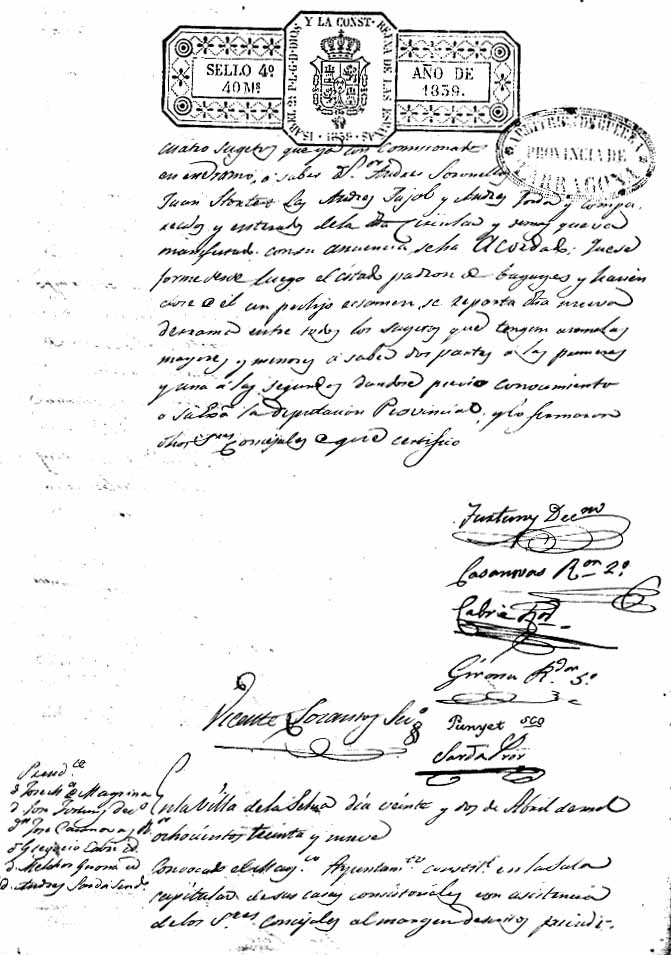 ISABEL 2ª P.L.G.D. DIOS Y LA CONST. REINA DE LAS ESPAÑAS
1839
SELLO 4º
40 Ms
AÑO DE
1839.
PROVINCIA DE
TARRAGONA
cuatro sugetos que ya con Comisionados
en and ramo, á saber Dn Andres
Juan Andres Pujol y Andres y compa-
recidos y enterados dela dha Circular y demas que va
manifestad. con su anuencia se ha Acordado: Que se
forme desde luego el citad padron de Bagages y hacien
dose de el un prolijo ecsamen se reparta dha nueva
derrama entre todos los sugetos que tengan acemilas
mayores y menores á saber dos partes á las primeras
y una á las segundas dandose previo conocimiento
a la Diputacion Provincial, y lo firmaron
dhos Sres Concejales de que certifico
Fortuny Decno
Casanovas Ron 2º
Cabré Ror
Girona Rdor 5º
Vicente Scrio
Punyet sco
Sardá Pror
Presidte
D. José Mª de Magriña
D. José Fortuny decº
Dn José Casanovas Rr
D Gregorio Cabré id
D. Melchor Girona id
D. Andres Sardá Sindo
En la Villa dela Selva dia veinte y dos de Abril de mil
ochocientos treinta y nueve
Convocado el Mag.co Ayuntamto constitl en la Sala
capitular de sus casas consistoriales con asistencia
de los Sres Concejales al margen descritos presidi-